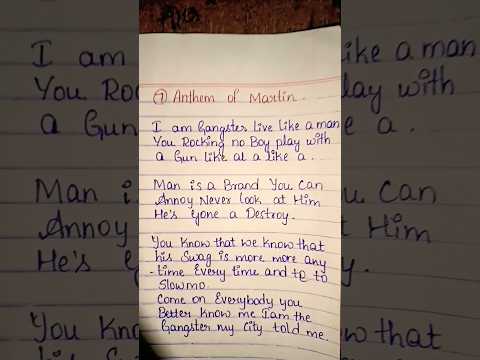 ① Anthem of Martin.
I am Gangster live like a man
You Rocking no Boy play with
a Gun like al a like a .
Man is a Brand You Can
Annoy Never Look at Him
He's Gone a Destroy.
You Know that we know that
his Swag is more more any
-time Every time and to to
Slowmo
Come on Everybody you
Better Know me I am the
Gangster my City told me.